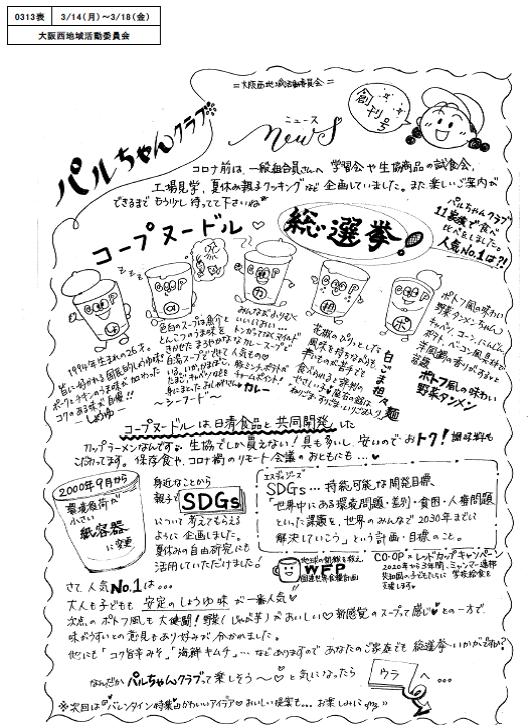 0313表 3/14(月)~3/18(金)
大阪西地域活動委員会
=大阪西地域活動委員会=
創刊号
パルちゃんクラブ
ニュース
news
コロナ前は、一般組合員さんへ 学習会や生協商品の試食会、
工場見学、夏休み親子クッキングなど 企画していました。また 楽しいご案内が
できるまで もう少し 待ってて下さいね
パルちゃんクラブ
11家族で食べ
比べをしました。
人気No.1は?!
コープヌードル
総選挙。
1994年生まれの26才。
皆に好かれる国民的しょうゆ味が
ポークチキンのうま味が加わった
コクのある味が自慢!!
~しょうゆ~
色白のスープは魚介と
とんこつのうま味を
きかせたまろやかな
白湯スープで
~シーフード~
カレー
白ごま担々麺
ポトフ風の味わい
野菜タンメンちゃん
キャベツ、コーン、にんじん、
ポテト、ベーコン風具材が
洋風鍋の香りがするよと
話題
ポトフ風の味わい
野菜タンメン
コープヌードルは日清食品と共同開発した
カップラーメンなんです。生協でしか買えない!具も多いし、安いのでおトク!調味料も
こだわってます。保存食や、コロナ禍のリモート会議のおともにも…
2000年9月から
環境負荷が
小さい
紙容器
に変更
身近なことから
親子でSDGs
について考えてもらえる
ように企画しました。
夏休みの自由研究にも
活用していただけました。
エスディジーズ
SDGs…持続可能な開発目標
「世界中にある環境問題・差別・貧困・人権問題
といった課題を、世界のみんなで2030年までに
解決していこう」という計画・目標のこと。
地球の飢餓を救え
WFP
国連世界食糧計画
CO・OP×レッドカップキャンペーン
2020年から3年間、ミャンマー連邦
共和国の子どもたちに 学校給食を
支援します。
さて 人気No.1は…
大人も子どもも 安定のしょうゆ味が一番人気
次点の ポトフ風も 大健闘!野菜(じゃが芋)がおいしい 新感覚のスープって感じ との一方で、
味がうすいとの意見もあり好みが分かれました。
他にも「コク旨辛みそ」「海鮮キムチ」…などありますので あなたのご家庭でも 総選挙いかがですか?
なんだか パルちゃんクラブって楽しそう~ と気になったら ウラ へ…
※次回は バレンタイン特集 かわいいアイデア おいしい提案も… お楽しみに